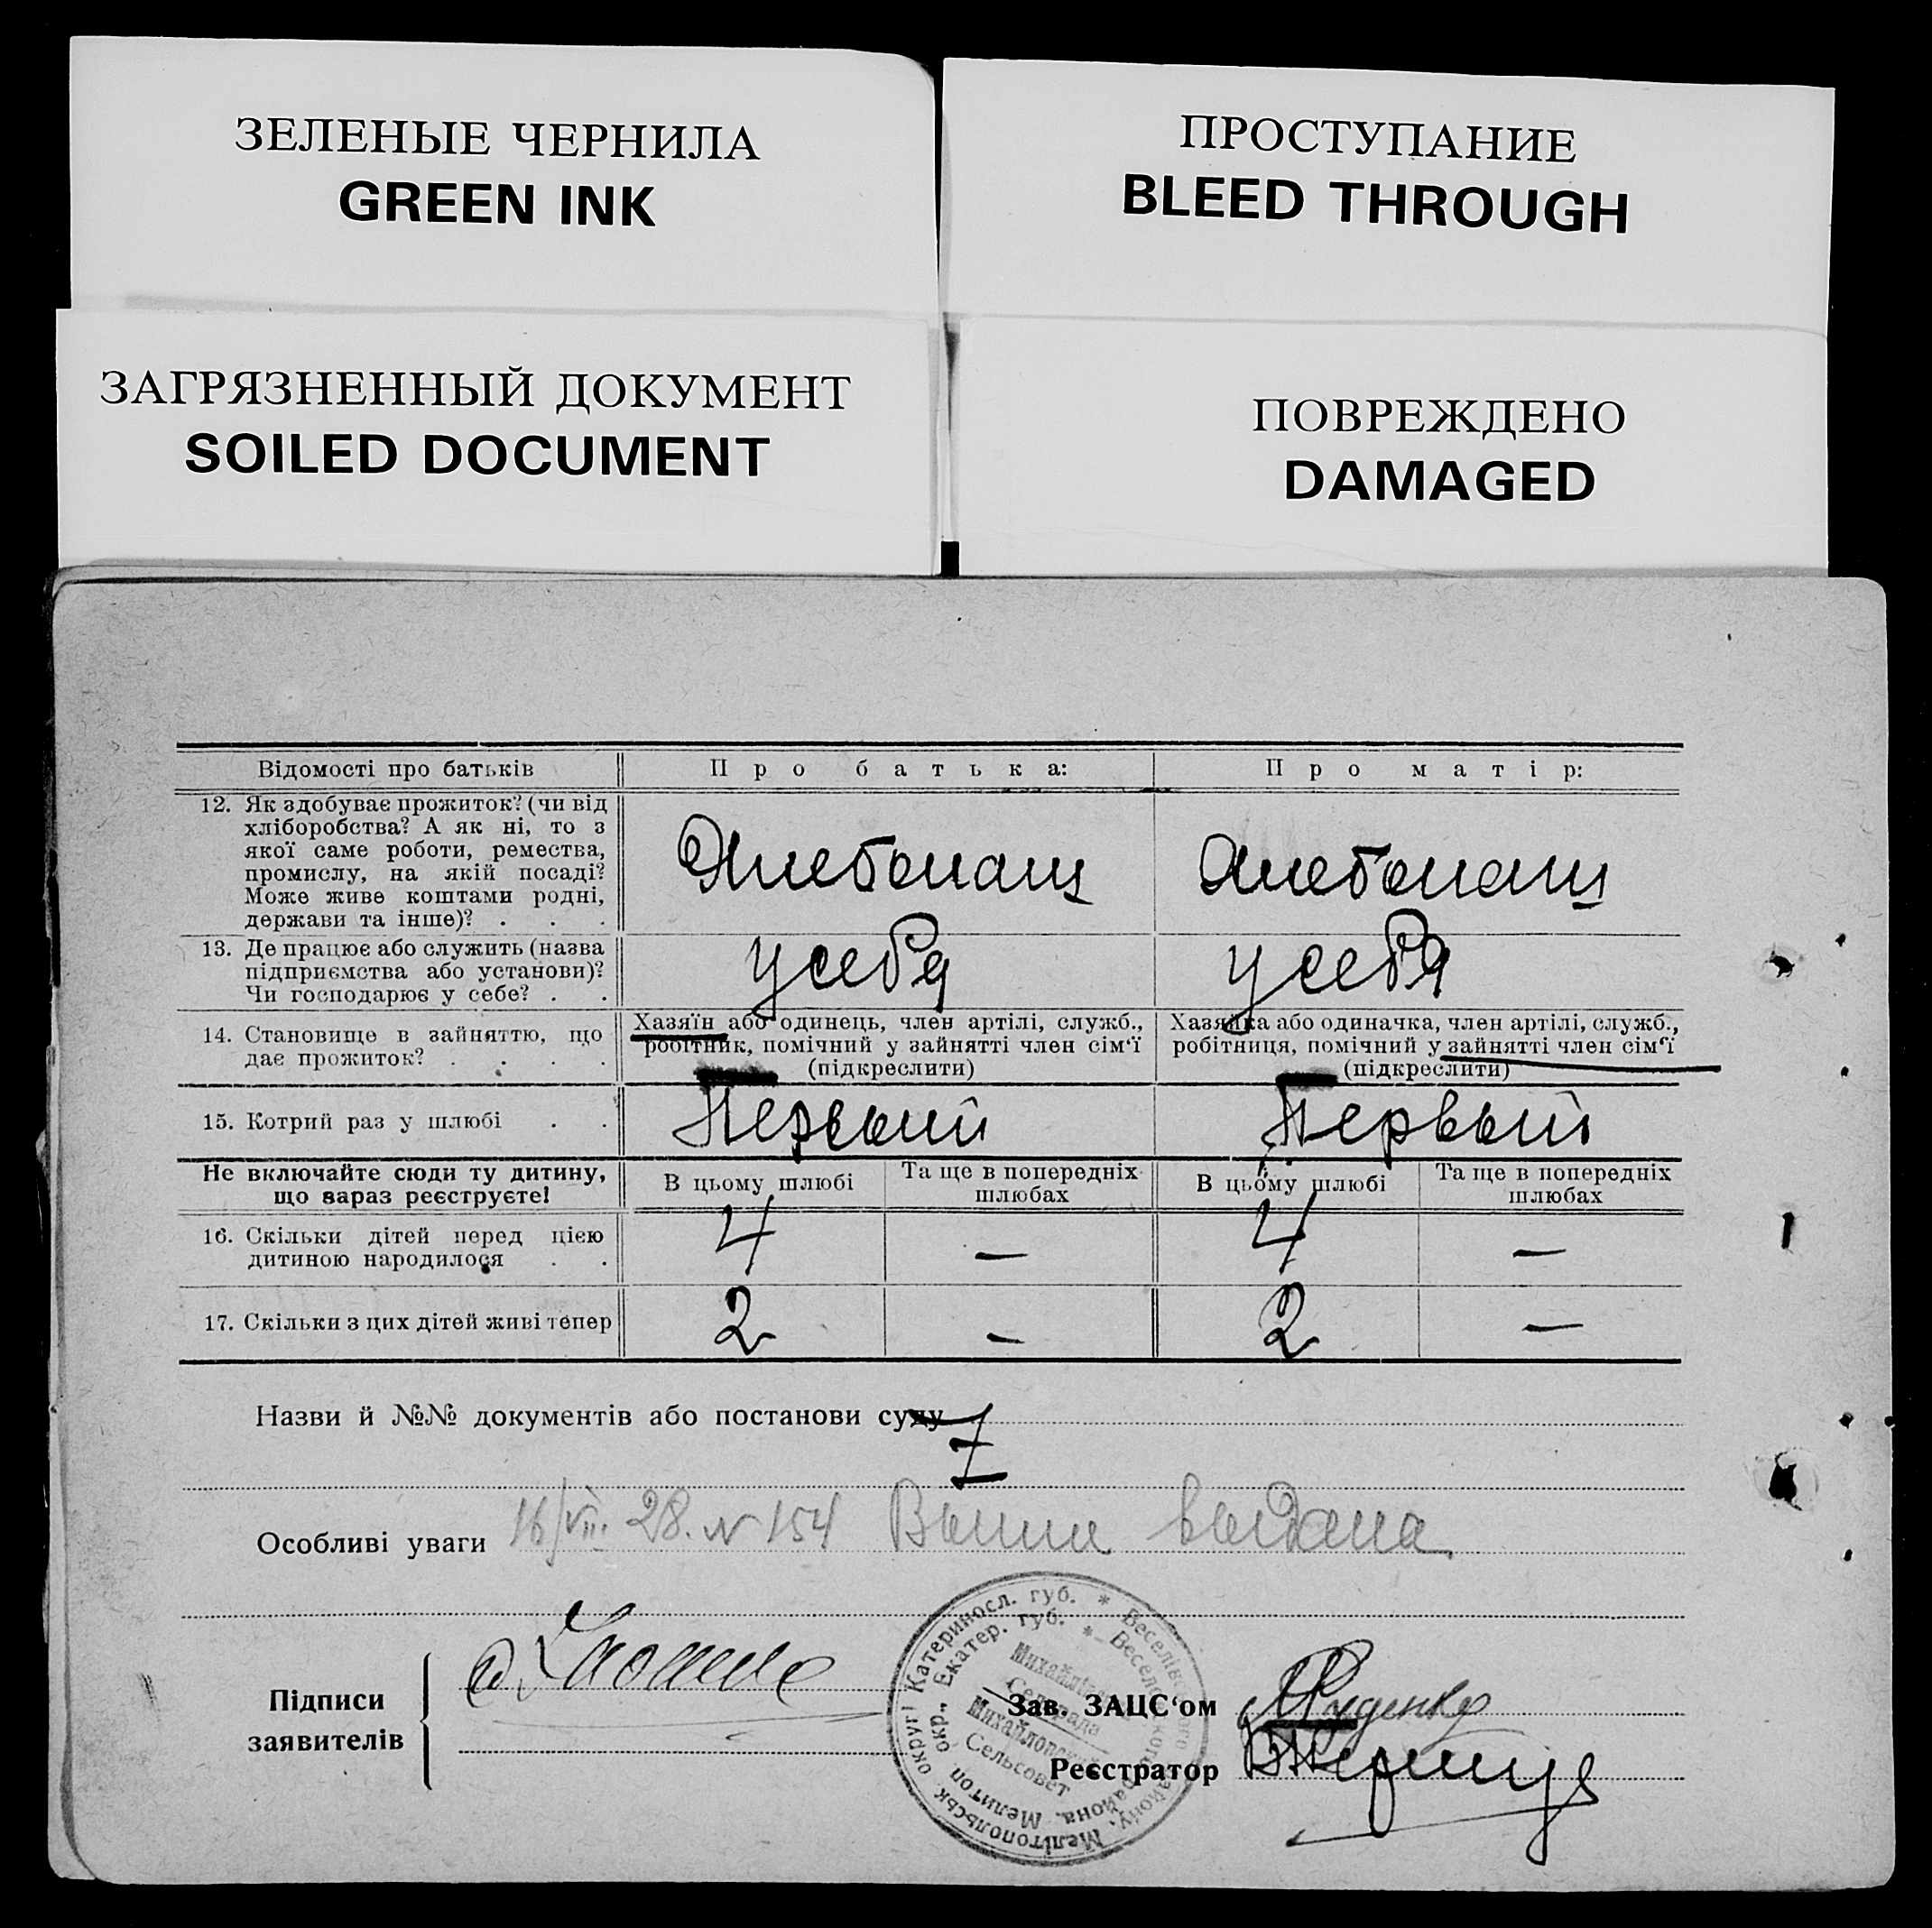 ЗЕЛЕНЫЕ ЧЕРНИЛА
GREEN INK
ПРОСТУПАНИЕ
BLEED THROUGH
ЗАГРЯЗНЕННЫЙ ДОКУМЕНТ
SOILED DOCUMENT
ПОВРЕЖДЕНО
DAMAGED
Відомості про батьків
Про батька:
Про матір:
12. Як здобуває прожиток? (чи від
хліборобства? А як ні, то з
якої саме роботи, ремества,
промислу, на якій посаді?
Може живе коштами родні,
держави та інше)? . . .
Хлебопаш
Хлебопаш
13. Де працює або служить (назва
підприємства або установи)?
Чи господарює у себе? . .
у себя
у себя
14. Становище в зайняттю, що
дає прожиток? . . . .
Хазяїн або одинець, член артілі, служб.,
робітник, помічний у зайнятті член сім'ї
(підкреслити)
Хазяйка або одиначка, член артілі, служб.,
робітниця, помічний у зайнятті член сім'ї
(підкреслити)
15. Котрий раз у шлюбі . .
Первый
Первый
Не включайте сюди ту дитину,
що зараз реєструєте!
В цьому шлюбі
Та ще в попередніх
шлюбах
В цьому шлюбі
Та ще в попередніх
шлюбах
16. Скільки дітей перед цією
дитиною народилося . .
4 — 4 —
17. Скільки з цих дітей живі тепер
2 — 2 —
Назви й №№ документів або постанови суду
Особливі уваги 16/VII 28. N 154 Выпись выдана
Підписи
заявителів
Катериносл. губ. * Веселівського району, Мелітопольськ округи
Екатер. губ. * Веселовского района, Мелитоп окр.
Сельрада
Михайловский
Сельсовет
Зав. ЗАЦС'ом Руденко
Реєстратор